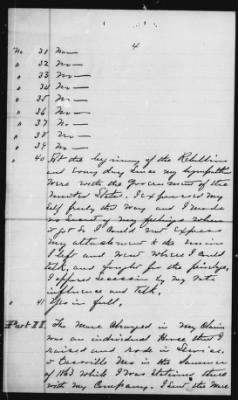 4
No 31 No —
" 32 No —
" 33 No —
" 34 No —
" 35 No —
" 36 No —
" 37 No —
" 38 No —
" 39 No —
" 40 At the beginning of the Rebellion
and every day since my sympathies
were with the Government of the
United States. I expressed my
self freely this way and I made
no secret of my feelings where
I could not express
my attachment to the union
I left and went where I could
talk, and fought for the privilege,
I opposed secession by my vote
influence and talk.
" 41 Yes in full.
Part II. The Mare charged in my claim
was an individual Horse that I
raised and rode in service,
Cassville Mo in the summer
of 1863 which I was stationed there
with my Company. I lent the Mare